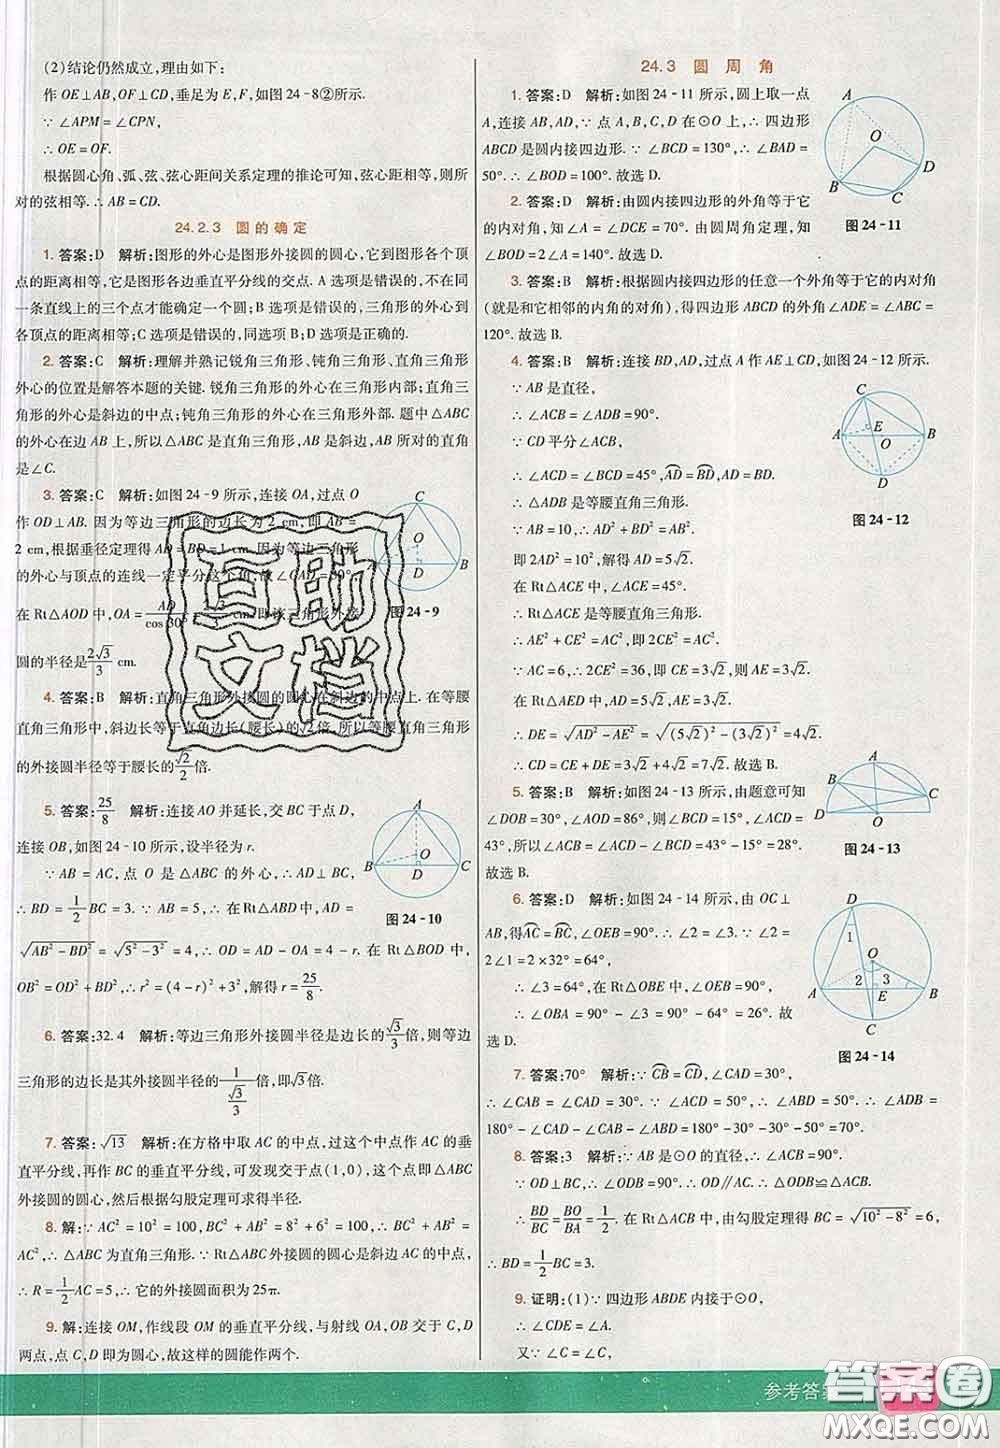 (2)结论仍然成立,理由如下:
作 OE⊥AB,OF⊥CD,垂足为 E,F,如图 24-8②所示.
∵ ∠APM=∠CPN,
∴ OE=OF.
根据圆心角、弧、弦、弦心距间关系定理的推论可知,弦心距相等,则所
对的弦相等.∴ AB=CD.
24.2.3 圆的确定
1. 答案:D 解析:图形的外心是图形外接圆的圆心,它到图形各个顶
点的距离相等,它是图形各边垂直平分线的交点. A 选项是错误的,不在同
一条直线上的三个点才能确定一个圆;B 选项是错误的,三角形的外心到
各顶点的距离相等;C 选项是错误的,同选项 B;D 选项是正确的.
2. 答案:C 解析:理解并熟记锐角三角形、钝角三角形、直角三角形
外心的位置是解答本题的关键. 锐角三角形的外心在三角形内部;直角三
角形的外心是斜边的中点;钝角三角形的外心在三角形外部. 题中△ABC
的外心在边 AB 上,所以△ABC 是直角三角形,AB 是斜边,所对的直角
是∠C.
3. 答案:C 解析:如图 24-9 所示,连接 OA,过点 O
作 OD⊥AB. 因为等边三角形的边长为 2 cm,即 AB=
2 cm,根据垂径定理得 AD=BD=1 cm. 因为等边三角形
的外心与顶点的连线一定平分这个角,故∠OAD=30°.
在 Rt△AOD 中,OA=AD/cos 30°=2√3/3.即该三角形外接
圆的半径是2√3/3 cm.
C
O
A D B
图 24-9
4. 答案:B 解析:直角三角形外接圆的圆心在斜边的中点上. 在等腰
直角三角形中,斜边长等于直角边长(腰长)的√2倍. 所以等腰直角三角形
的外接圆半径等于腰长的√2/2倍.
5. 答案:25/8 解析:连接 AO 并延长,交 BC 于点 D,
连接 OB,如图 24-10 所示,设半径为 r.
∵ AB=AC,点 O 是△ABC 的外心,
∴ BD=1/2BC=3.∴ 在 Rt△ABD 中,AD=
√(AB²-BD²)=√(5²-3²)=4.∴ OD=AD-AO=4-r. 在 Rt△BOD 中,
OB²=OD²+BD²,∴ r²=(4-r)²+3²,解得 r=25/8.
A
O
B D C
图 24-10
6. 答案:32.4 解析:等边三角形外接圆半径是边长的√3/3倍,则等边
三角形的边长是其外接圆半径的1/(√3/3)倍,即√3倍.
7. 答案:√13 解析:在方格中取 AC 的中点,过这个中点作 AC 的垂
直平分线,再作 BC 的垂直平分线,可发现交于点(1,0),这个点即△ABC
外接圆的圆心,然后根据勾股定理可求得半径.
8. 解:∵ AC²=10²=100,BC²+AB²=8²+6²=100,∴ AC²=BC²+
AC²,∴ △ABC 为直角三角形.∵ Rt△ABC外接圆的圆心是斜边 AC 的中点,
∴ R=1/2AC=5.∴ 它的外接圆面积为 25π.
9. 解:连接 OM,作线段 OM 的垂直平分线,与射线 OA,OC 交于 C,D
两点,点 C,D 即为圆心,故这样的圆能作两个.
24.3 圆周角
1. 答案:D 解析:如图 24-11 所示,圆上取一点
A,连接 AB,AD.∵ 点 A,B,C,D 在⊙O 上,∴ 四边形
ABCD 是圆内接四边形.∵ ∠BCD=130°,∴ ∠BAD=
50°.∴ ∠BOD=100°. 故选 D.
2. 答案:D 解析:由圆内接四边形的外角等于它
的内对角,知∠A=∠DCE=70°. 由圆周角定理,知
∠BOD=2∠A=140°. 故选 D.
A
O
D
B
C
图 24-11
3. 答案:B 解析:根据圆内接四边形的任意一个外角等于它的内对角
(就是和它相邻的内角的对角),得四边形 ABCD 的外角∠ADE=∠ABC=
120°. 故选 B.
4. 答案:B 解析:连接 BD,AD,过点 A 作 AE⊥CD,如图 24-12 所示.
∵ AB 是直径,
∴ ∠ACB=∠ADB=90°.
∵ CD 平分∠ACB,
∴ ∠ACD=∠BCD=45°,AD=BD,AD=BD.
∴ △ADB 是等腰直角三角形.
∵ AB=10,∴ AD²+BD²=AB².
即 2AD²=10²,解得 AD=5√2.
在 Rt△ACE 中,∠ACE=45°.
∴ Rt△ACE 是等腰直角三角形.
∴ AE²+CE²=AC²,即 2CE²=AC².
∵ AC=6,∴ 2CE²=36,即 CE=3√2,则 AE=3√2.
在 Rt△AED 中,AD=5√2,AE=3√2,
∴ DE=√(AD²-AE²)=√((5√2)²-(3√2)²)=4√2.
∴ CD=CE+DE=3√2+4√2=7√2. 故选 B.
C
E
A O B
D
图 24-12
5. 答案:B 解析:如图 24-13 所示,由题意可知
∠DOB=30°,∠AOD=86°,则∠BCD=15°,∠ACD=
43°.∴ ∠ACB=∠ACD-∠BCD=43°-15°=28°. 故
选 B.
A
B
C
D
O
图 24-13
6. 答案:D 解析:如图 24-14 所示,由 OC⊥
AB,得AC=BC,∠OEB=90°.∴ ∠2=∠3.∵ ∠2=
2∠1=2×32°=64°,
∴ ∠3=64°,在 Rt△OBE 中,∠OEB=90°,
∴ ∠OBA=90°-∠3=90°-64°=26°. 故
选 D.
D
1
O
2 3
A E B
C
图 24-14
7. 答案:70° 解析:∵ CB=CD,∠CAD=30°,
∴ ∠CAB=∠CAD=30°.∴ ∠BAD=60°.∵ ∠ACD=50°,∴ ∠ADB=
180°-∠CAB-∠ABD=180°-50°-60°=70°.
8. 答案:3 解析:∵ AB 是⊙O 的直径,∴ ∠C=90°.
∵ OD⊥BC,∴ OD∥AC.∴ △ODB∽△ABC.
∴ BD/BC=BO/BA=1/2. 在 Rt△ACB 中,由勾股定理得 BC=√(10²-8²)=6,
∴ BD=1/2BC=3.
9. 证明:(1)∵ 四边形 ABDE 内接于⊙O,
∴ ∠CDE=∠A.
又∵ ∠C=∠C,
参考答案
互助
文档
答案卷
MXQE.COM